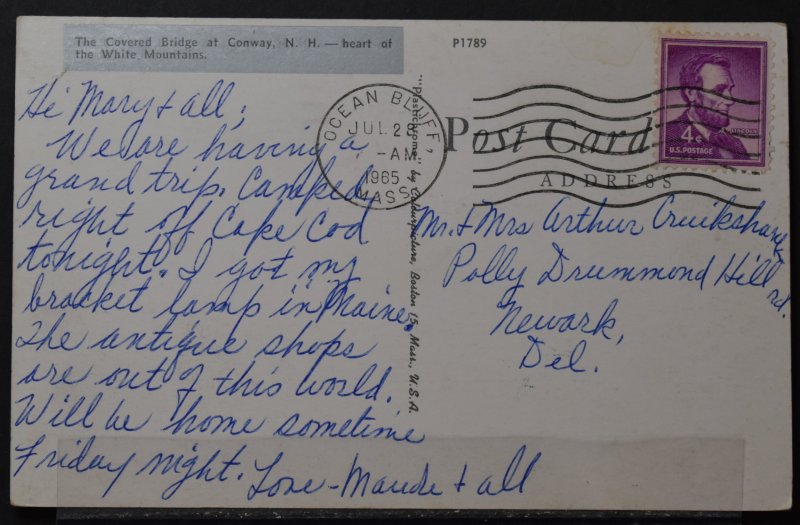 The Covered Bridge at Conway, N. H. — heart of
the White Mountains.
P1789
Hi Mary & all,
We are having a
grand trip. Camped
right off Cape Cod
tonight. I got my
bracket lamp in Maine.
The antique shops
are out of this world.
Will be home sometime
Friday night. Love - Maude & all
"Plastichrome" by Colourpicture, Boston 15, Mass., U.S.A.
OCEAN BLUFF,
JUL 28
-AM
1965
MASS.
Post Card
ADDRESS
4¢
LINCOLN
U.S. POSTAGE
Mr. & Mrs Arthur Cruikshank
Polly Drummond Hill
rd.
Newark,
Del.